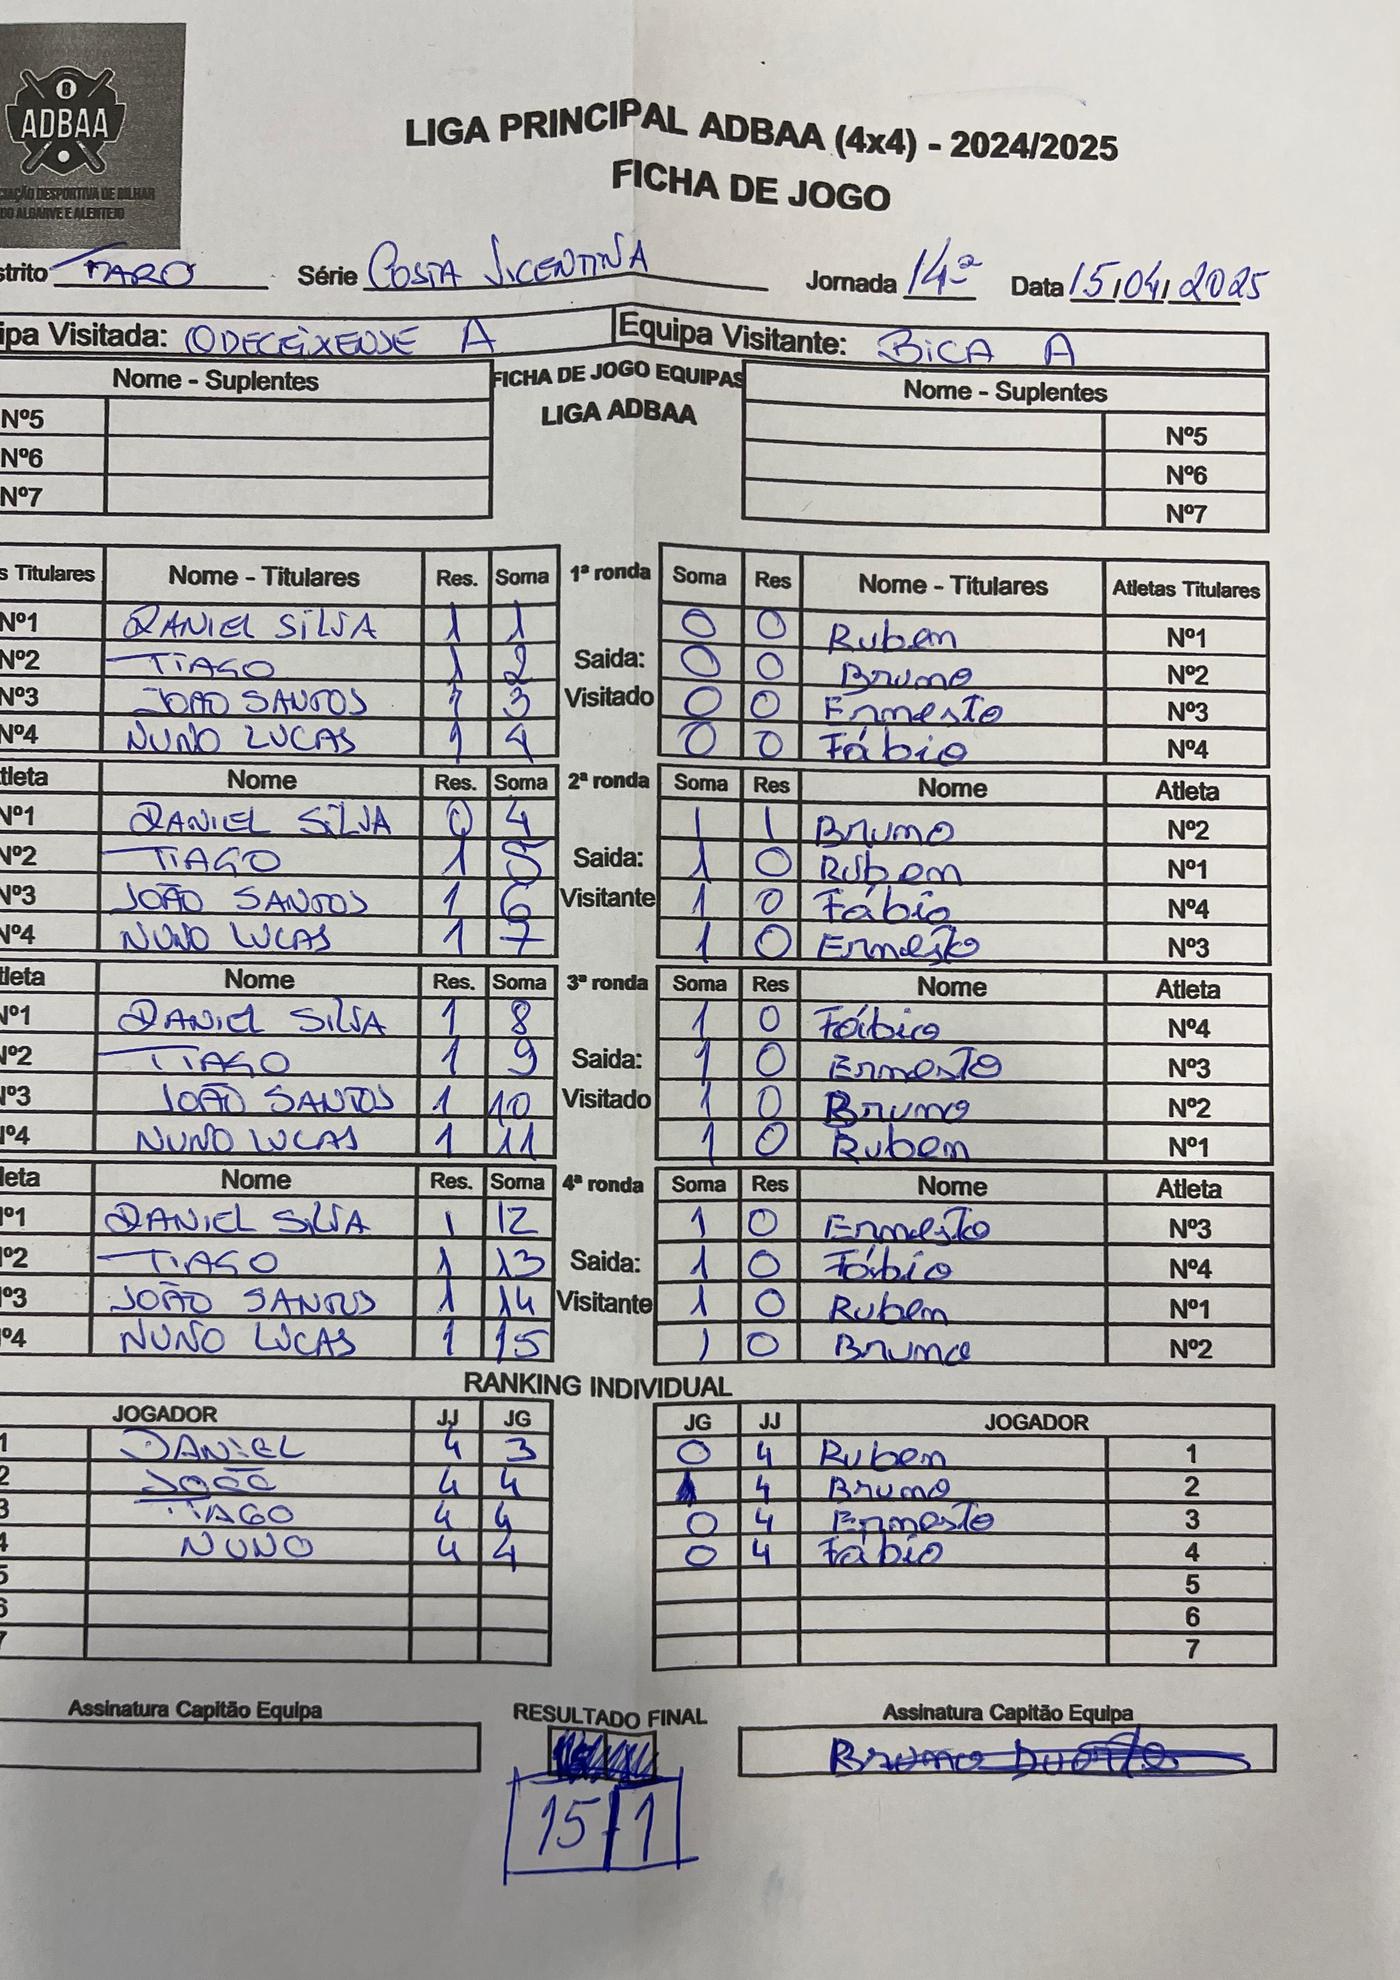 ADBAA
CIAÇÃO DESPORTIVA DE BILHAR
DO ALGARVE E ALENTEJO
LIGA PRINCIPAL ADBAA (4x4) - 2024/2025
FICHA DE JOGO
strito FARO Série COSTA VICENTINA Jornada 14ª Data 15/04/2025
ipa Visitada: ODECEIXENSE A Equipa Visitante: BICA A
Nome - Suplentes FICHA DE JOGO EQUIPAS Nome - Suplentes
LIGA ADBAA
Nº5 Nº5
Nº6 Nº6
Nº7 Nº7
s Titulares Nome - Titulares Res. Soma 1ª ronda Soma Res Nome - Titulares Atletas Titulares
Nº1 DANIEL SILVA 1 1 0 0 Ruben Nº1
Nº2 TIAGO 1 2 Saida: 0 0 Bruno Nº2
Nº3 JOÃO SANTOS 1 3 Visitado 0 0 Ernesto Nº3
Nº4 NUNO LUCAS 1 4 0 0 Fábio Nº4
tleta Nome Res. Soma 2ª ronda Soma Res Nome Atleta
Nº1 DANIEL SILVA 0 4 1 1 Bruno Nº2
Nº2 TIAGO 1 5 Saida: 1 0 Ruben Nº1
Nº3 JOÃO SANTOS 1 6 Visitante 1 0 Fábio Nº4
Nº4 NUNO LUCAS 1 7 1 0 Ernesto Nº3
tleta Nome Res. Soma 3ª ronda Soma Res Nome Atleta
Nº1 DANIEL SILVA 1 8 1 0 Fábio Nº4
Nº2 TIAGO 1 9 Saida: 1 0 Ernesto Nº3
Nº3 JOÃO SANTOS 1 10 Visitado 1 0 Bruno Nº2
Nº4 NUNO LUCAS 1 11 1 0 Ruben Nº1
leta Nome Res. Soma 4ª ronda Soma Res Nome Atleta
Nº1 DANIEL SILVA 1 12 1 0 Ernesto Nº3
Nº2 TIAGO 1 13 Saida: 1 0 Fábio Nº4
Nº3 JOÃO SANTOS 1 14 Visitante 1 0 Ruben Nº1
Nº4 NUNO LUCAS 1 15 1 0 Bruno Nº2
RANKING INDIVIDUAL
JOGADOR JJ JG JG JJ JOGADOR
1 DANIEL 4 3 0 4 Ruben 1
2 JOÃO 4 4 1 4 Bruno 2
3 TIAGO 4 4 0 4 Ernesto 3
4 NUNO 4 4 0 4 Fábio 4
5 5
6 6
7 7
Assinatura Capitão Equipa RESULTADO FINAL Assinatura Capitão Equipa
Bruno Duarte
15 1